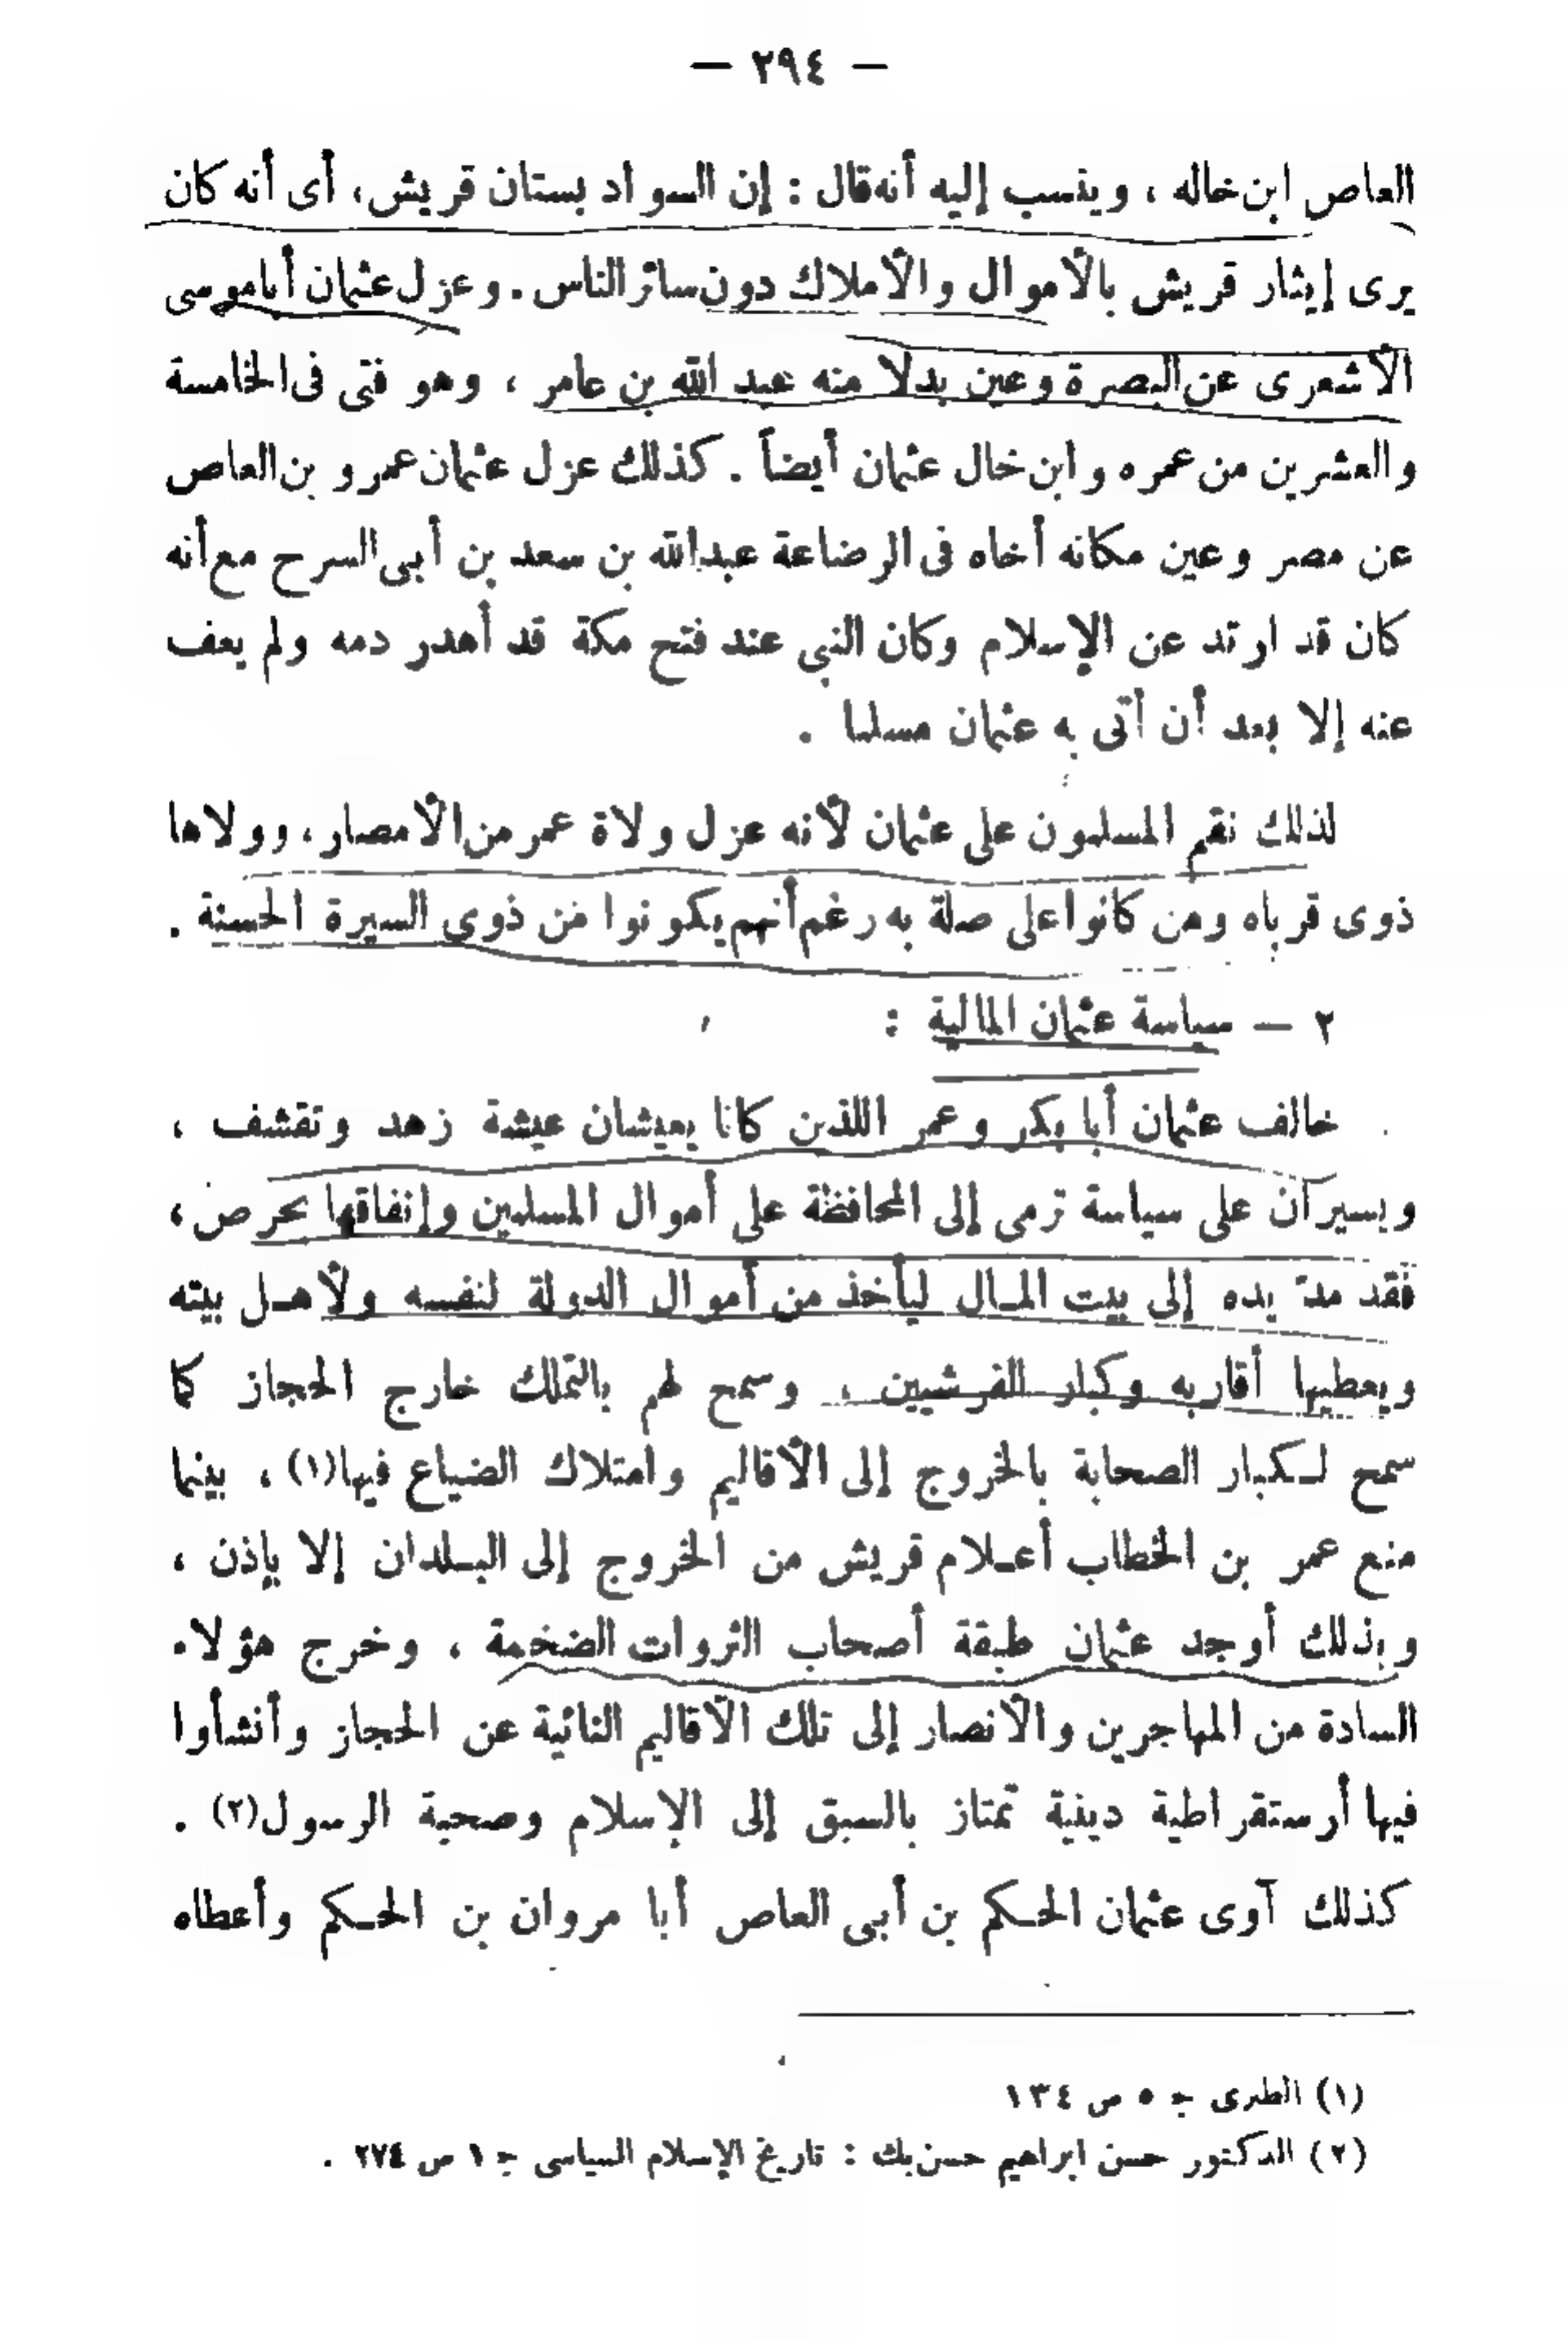 — ٢٩٤ —
العاص ابن خاله ، وينسب إليه أنه قال : إن السواد بستان قريش، أى أنه كان
يرى إيثار قريش بالأموال والأملاك دون سائر الناس . وعزل عثمان أباموسى
الأشعرى عن البصرة وعين بدلا منه عبد الله بن عامر ، وهو فتى فى الخامسة
والعشرين من عمره وابن خال عثمان أيضاً . كذلك عزل عثمان عمرو بن العاص
عن مصر وعين مكانه أخاه فى الرضاعة عبدالله بن سعد بن أبى السرح مع أنه
كان قد ارتد عن الإسلام وكان النبى عند فتح مكة قد أهدر دمه ولم يعف
عنه إلا بعد أن أتى به عثمان مسلما .
لذلك نقم المسلمون على عثمان لأنه عزل ولاة عمر من الأمصار، وولاها
ذوى قرباه ومن كانوا على صلة به رغم أنهم يكونوا من ذوى السيرة الحسنة .
٢ — سياسة عثمان المالية :
خالف عثمان أبا بكر وعمر اللذين كانا يعيشان عيشة زهد وتقشف ،
ويسيران على سياسة ترمى إلى المحافظة على أموال المسلمين وإنفاقها بحرص ،
فقد مدّ يده إلى بيت المال ليأخذ من أموال الدولة لنفسه ولأهل بيته
ويعطيها أقاربه وكبار القرشيين ، وسمح لهم بالتملك خارج الحجاز كما
سمح لكبار الصحابة بالخروج إلى الأقاليم وامتلاك الضياع فيها(١) ، بينما
منع عمر بن الخطاب أعلام قريش من الخروج إلى البلدان إلا بإذن ،
وبذلك أوجد عثمان طبقة أصحاب الثروات الضخمة ، وخرج هؤلاء
السادة من المهاجرين والأنصار إلى تلك الأقاليم النائية عن الحجاز وأنشأوا
فيها أرستقراطية دينية تمتاز بالسبق إلى الإسلام وصحبة الرسول(٢) .
كذلك آوى عثمان الحكم بن أبى العاص أبا مروان بن الحكم وأعطاه
(١) الطبرى ج ٥ ص ١٣٤
(٢) الدكتور حسن ابراهيم حسن بك : تاريخ الإسلام السياسى ج ١ ص ٢٧٤ .